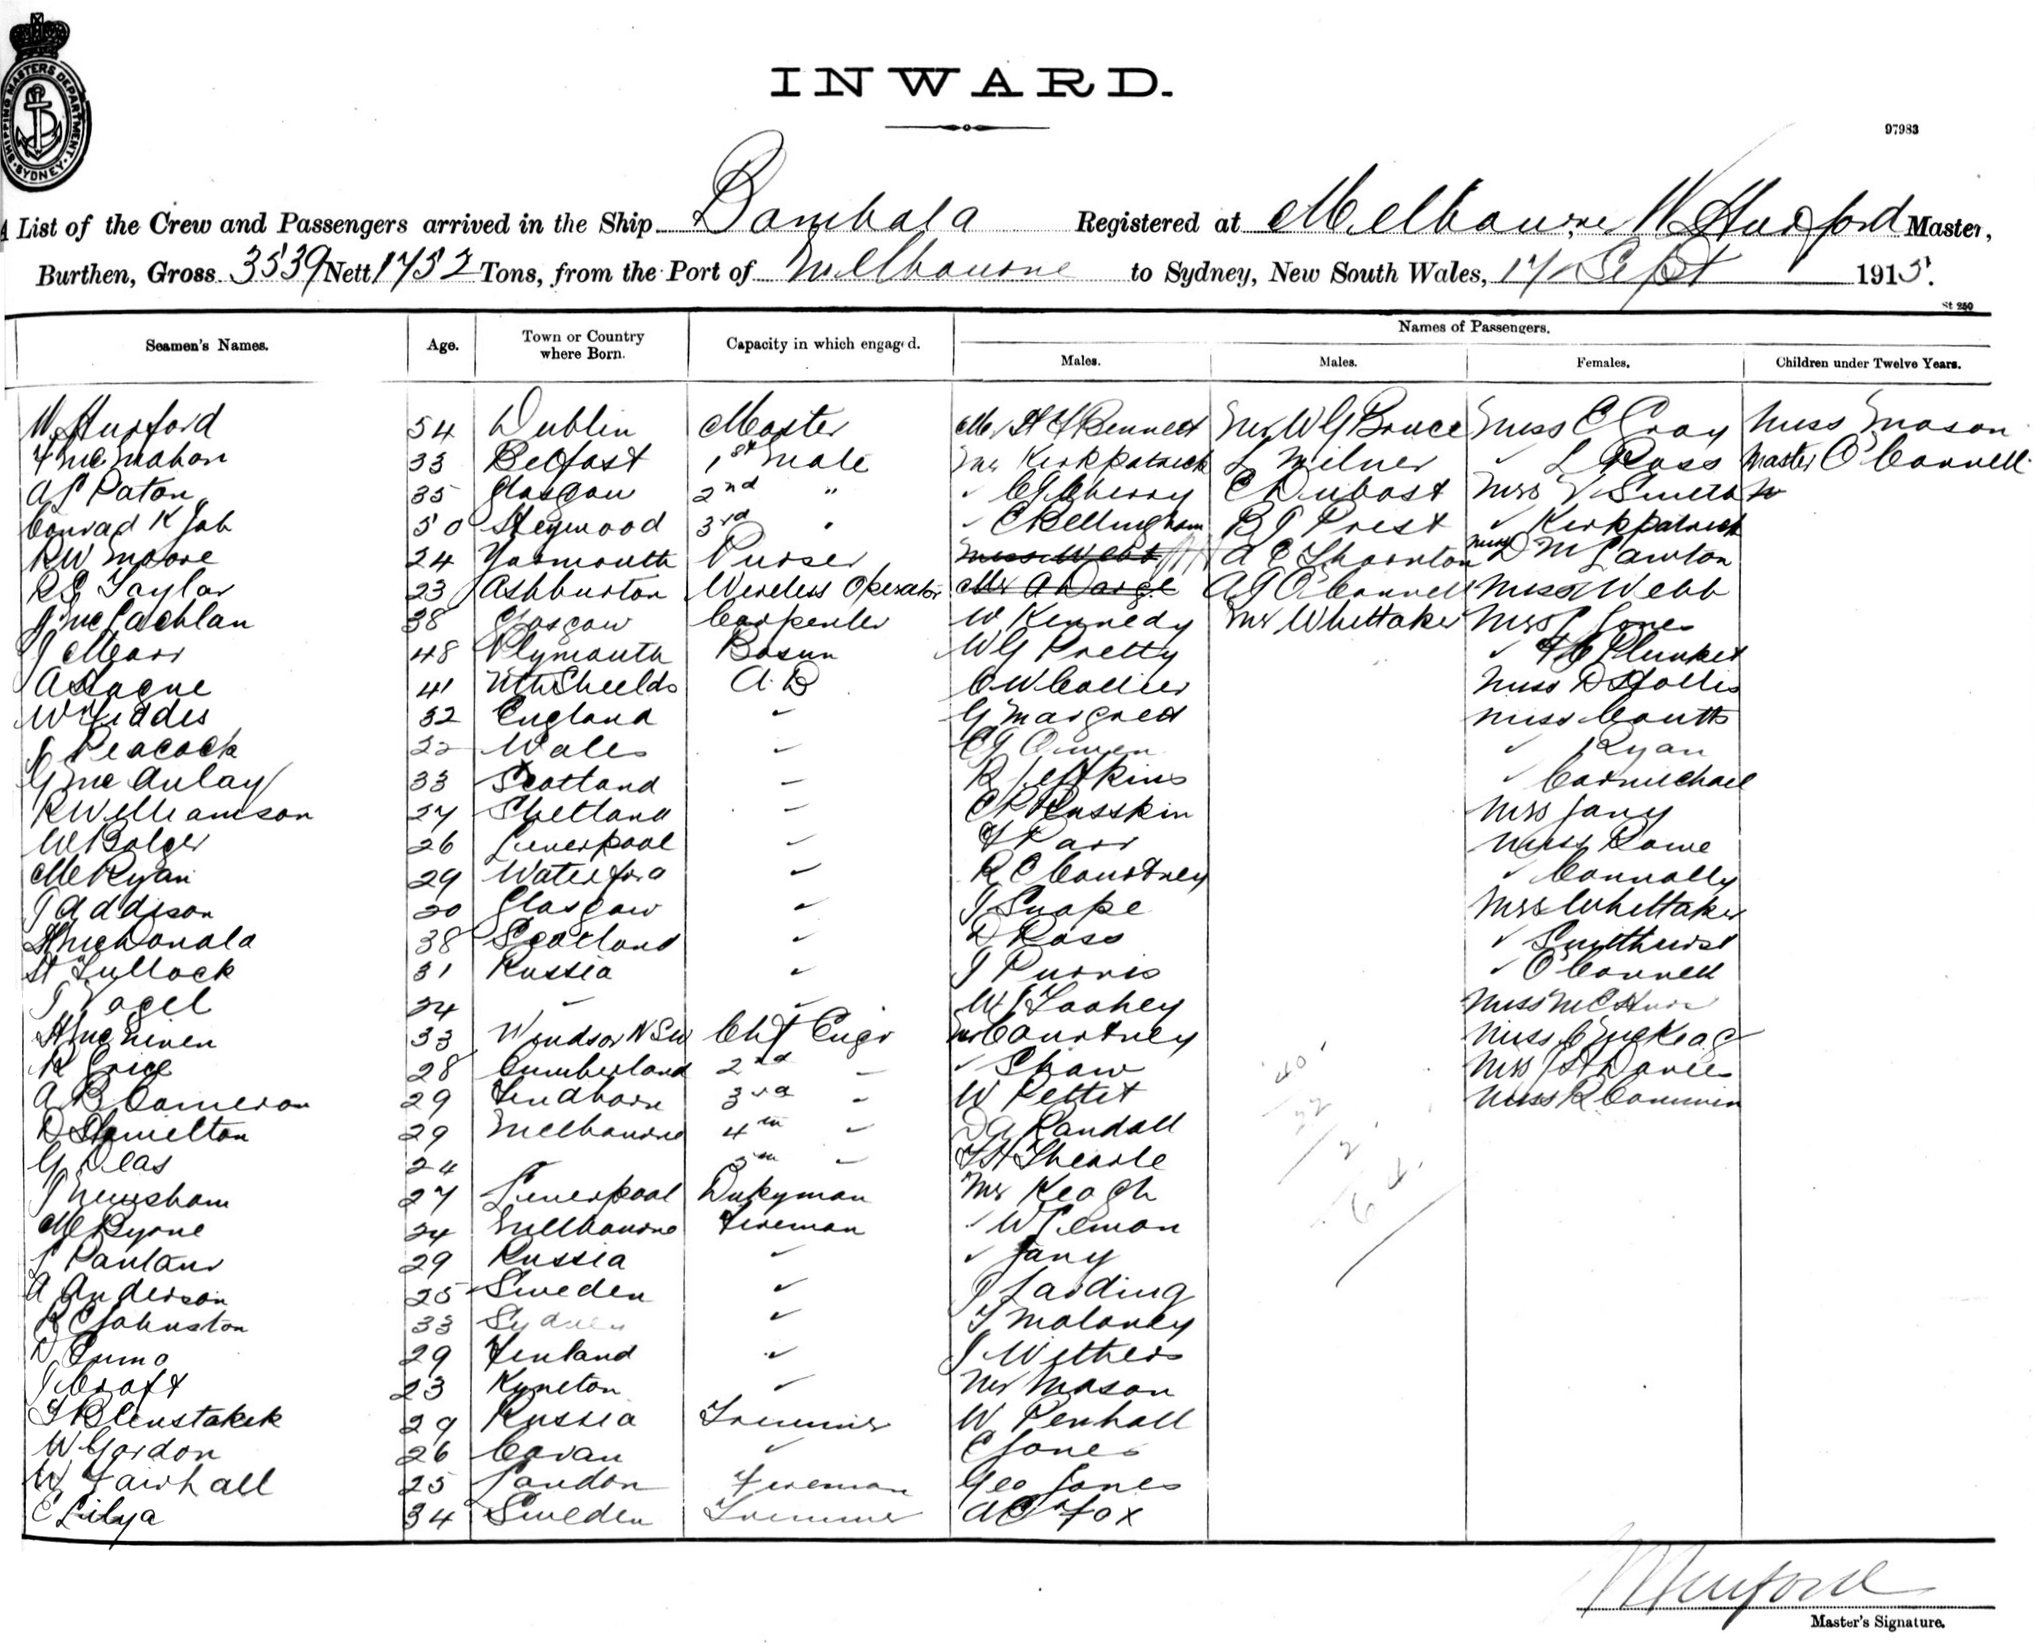 SHIPPING MASTERS DEPARTMENT. SYDNEY
INWARD.
97983
A List of the Crew and Passengers arrived in the Ship Bombala Registered at Melbourne W Hurford Master,
Burthen, Gross 3539 Nett 1752 Tons, from the Port of Melbourne to Sydney, New South Wales, 17 Sept 1915.
St 250
Seamen's Names. Age. Town or Country where Born. Capacity in which engaged. Names of Passengers.
Males. Males. Females. Children under Twelve Years.
W Hurford 54 Dublin Master Mr H Bennett Mr W G Bruce Miss C Gray Miss Mason
F McMahon 33 Belfast 1st Mate Mr Kirkpatrick L Milner " L Ross Master O'Connell
A S Paton 35 Glasgow 2nd " " C G Cherry C Dubost Mrs V Smith
Conrad K Job 50 Heywood 3rd " " C Bellingham B J Prest " Kirkpatrick
R W Moore 24 Yarmouth Purser Miss Webb A E Thornton D M Lawton
R G Taylor 23 Ashburton Wireless Operator Mr A Darge A J O'Connell Miss Webb
J McLachlan 38 Glasgow Carpenter W Kennedy Mr Whittaker Mrs Jones
J Marr 48 Plymouth Bosun W G Pretty " Plunket
A Hague 41 Nth Shields A.B C W Collier Miss D Hollis
W Geddes 32 England " G Margred Miss Coutts
J Peacock 22 Wales " C J Owen " Ryan
G McAulay 33 Scotland " R Jefkins " Carmichael
R Williamson 27 Shetland " C R Russkin Mrs Jany
W Bolger 26 Liverpool " F Parr Miss Rowe
M Ryan 29 Waterford " R C Courtney " Connolly
J Addison 20 Glasgow " J Snape Mrs Whittaker
H McDonald 38 Scotland " D Ross " Smithurst
H Tullock 31 Russia " J Purvis " O'Connell
J Vogel 24 " " W J Toohey Miss
H McNiven 33 Windsor NSW Chf Engr Mr Courtney Miss C McKeag
R Grice 28 Cumberland 2nd " " Shaw Mrs J H Davies
A B Cameron 29 Findhorn 3rd " W Pettit Miss R Cummin
D Hamilton 29 Melbourne 4th " D A Randall
G Deas 24 " 5th " F H Thearle
J Newsham 27 Liverpool Dukyman Mr Keogh
M Byrne 24 Melbourne Fireman " W Lemon
29 Russia " " Jany
A Anderson 25 Sweden " J Larding
R C Johnston 33 Sydney " T Maloney
29 Finland " J Withers
J Croft 23 Kyneton " Mr Mason
29 Russia Trimmer W Penhall
W Gordon 26 Cavan " C Jones
W Fairhall 25 London Fireman Geo Jones
E Lilya 34 Sweden Trimmer A C Fox
40
22
2
64
W Hurford
Master's Signature.